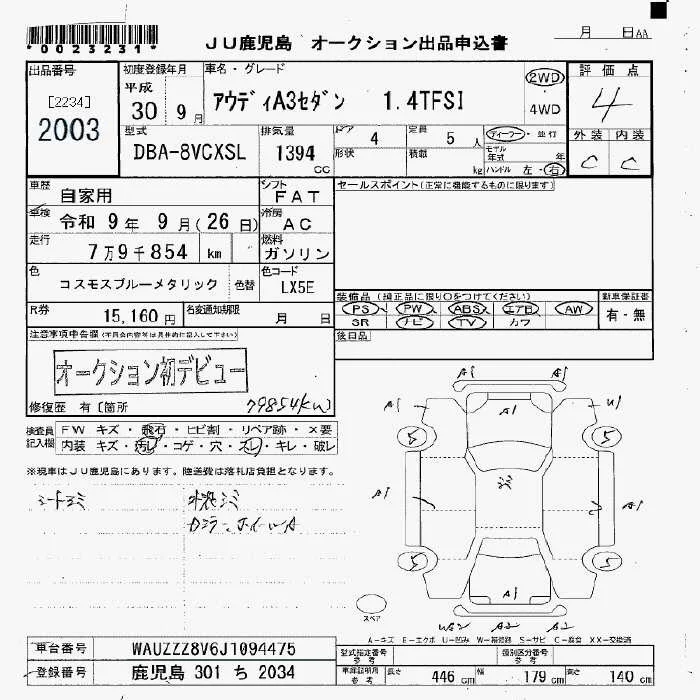 *0023231*
JU鹿児島 オークション出品申込書
月 日AA
出品番号
[2234]
2003
初度登録年月
平成
30 9月
車名・グレード
アウディA3セダン 1.4TFSI
2WD
・
4WD
評価点
4
外装 内装
C C
型式
DBA-8VCXSL
排気量
1394
CC
ドア 4
定員 5 人
形状
積載 kg
ディーラー・並行
モデル年式 年
ハンドル 左・右
車歴
自家用
シフト
FAT
車検
令和 9年 9月(26日)
冷房
AC
走行
7万9千854 km
燃料
ガソリン
色
コスモスブルーメタリック
色替
色コード
LX5E
R券
15,160円
名変通知期限
月 日
セールスポイント(正常に機能するものに限ります)
装備品(純正品に限り○をつけてください)
PS PW ABS エアB AW
SR ナビ TV カワ
新車保証書
有・無
後日品
注意事項申告欄
オークション初デビュー
修復歴 有[箇所
79854km)
検査員記入欄
FW キズ・飛石・ヒビ割・リペア跡・×要
内装 キズ・汚レ・コゲ・穴・スレ・キレ・破レ
※現車はJU鹿児島にあります。陸送費は落札店負担となります。
シートシミ
A1
A1
A1
U1
A1
5
5
シミ
A1
A1
5
5
A1
スペア
A2
A2
A-キズ E-エクボ U-凹み W-補修跡 S-サビ C-腐食 XX-交換済
車台番号
WAUZZZ8V6J1094475
登録番号
鹿児島 301 ち 2034
型式指定番号
参考
類別区分番号
参考
車庫証明用
参考
長さ 446 cm
幅 179 cm
高さ 140 cm